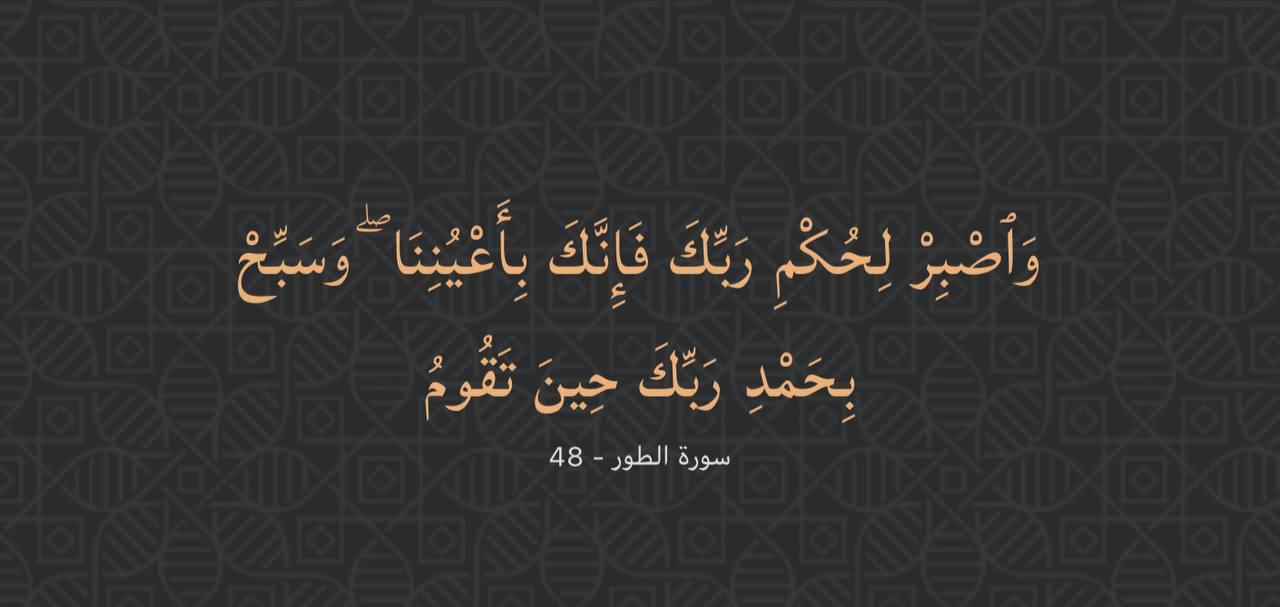 وَٱصْبِرْ لِحُكْمِ رَبِّكَ فَإِنَّكَ بِأَعْيُنِنَا ۖ وَسَبِّحْ
بِحَمْدِ رَبِّكَ حِينَ تَقُومُ
سورة الطور - 48